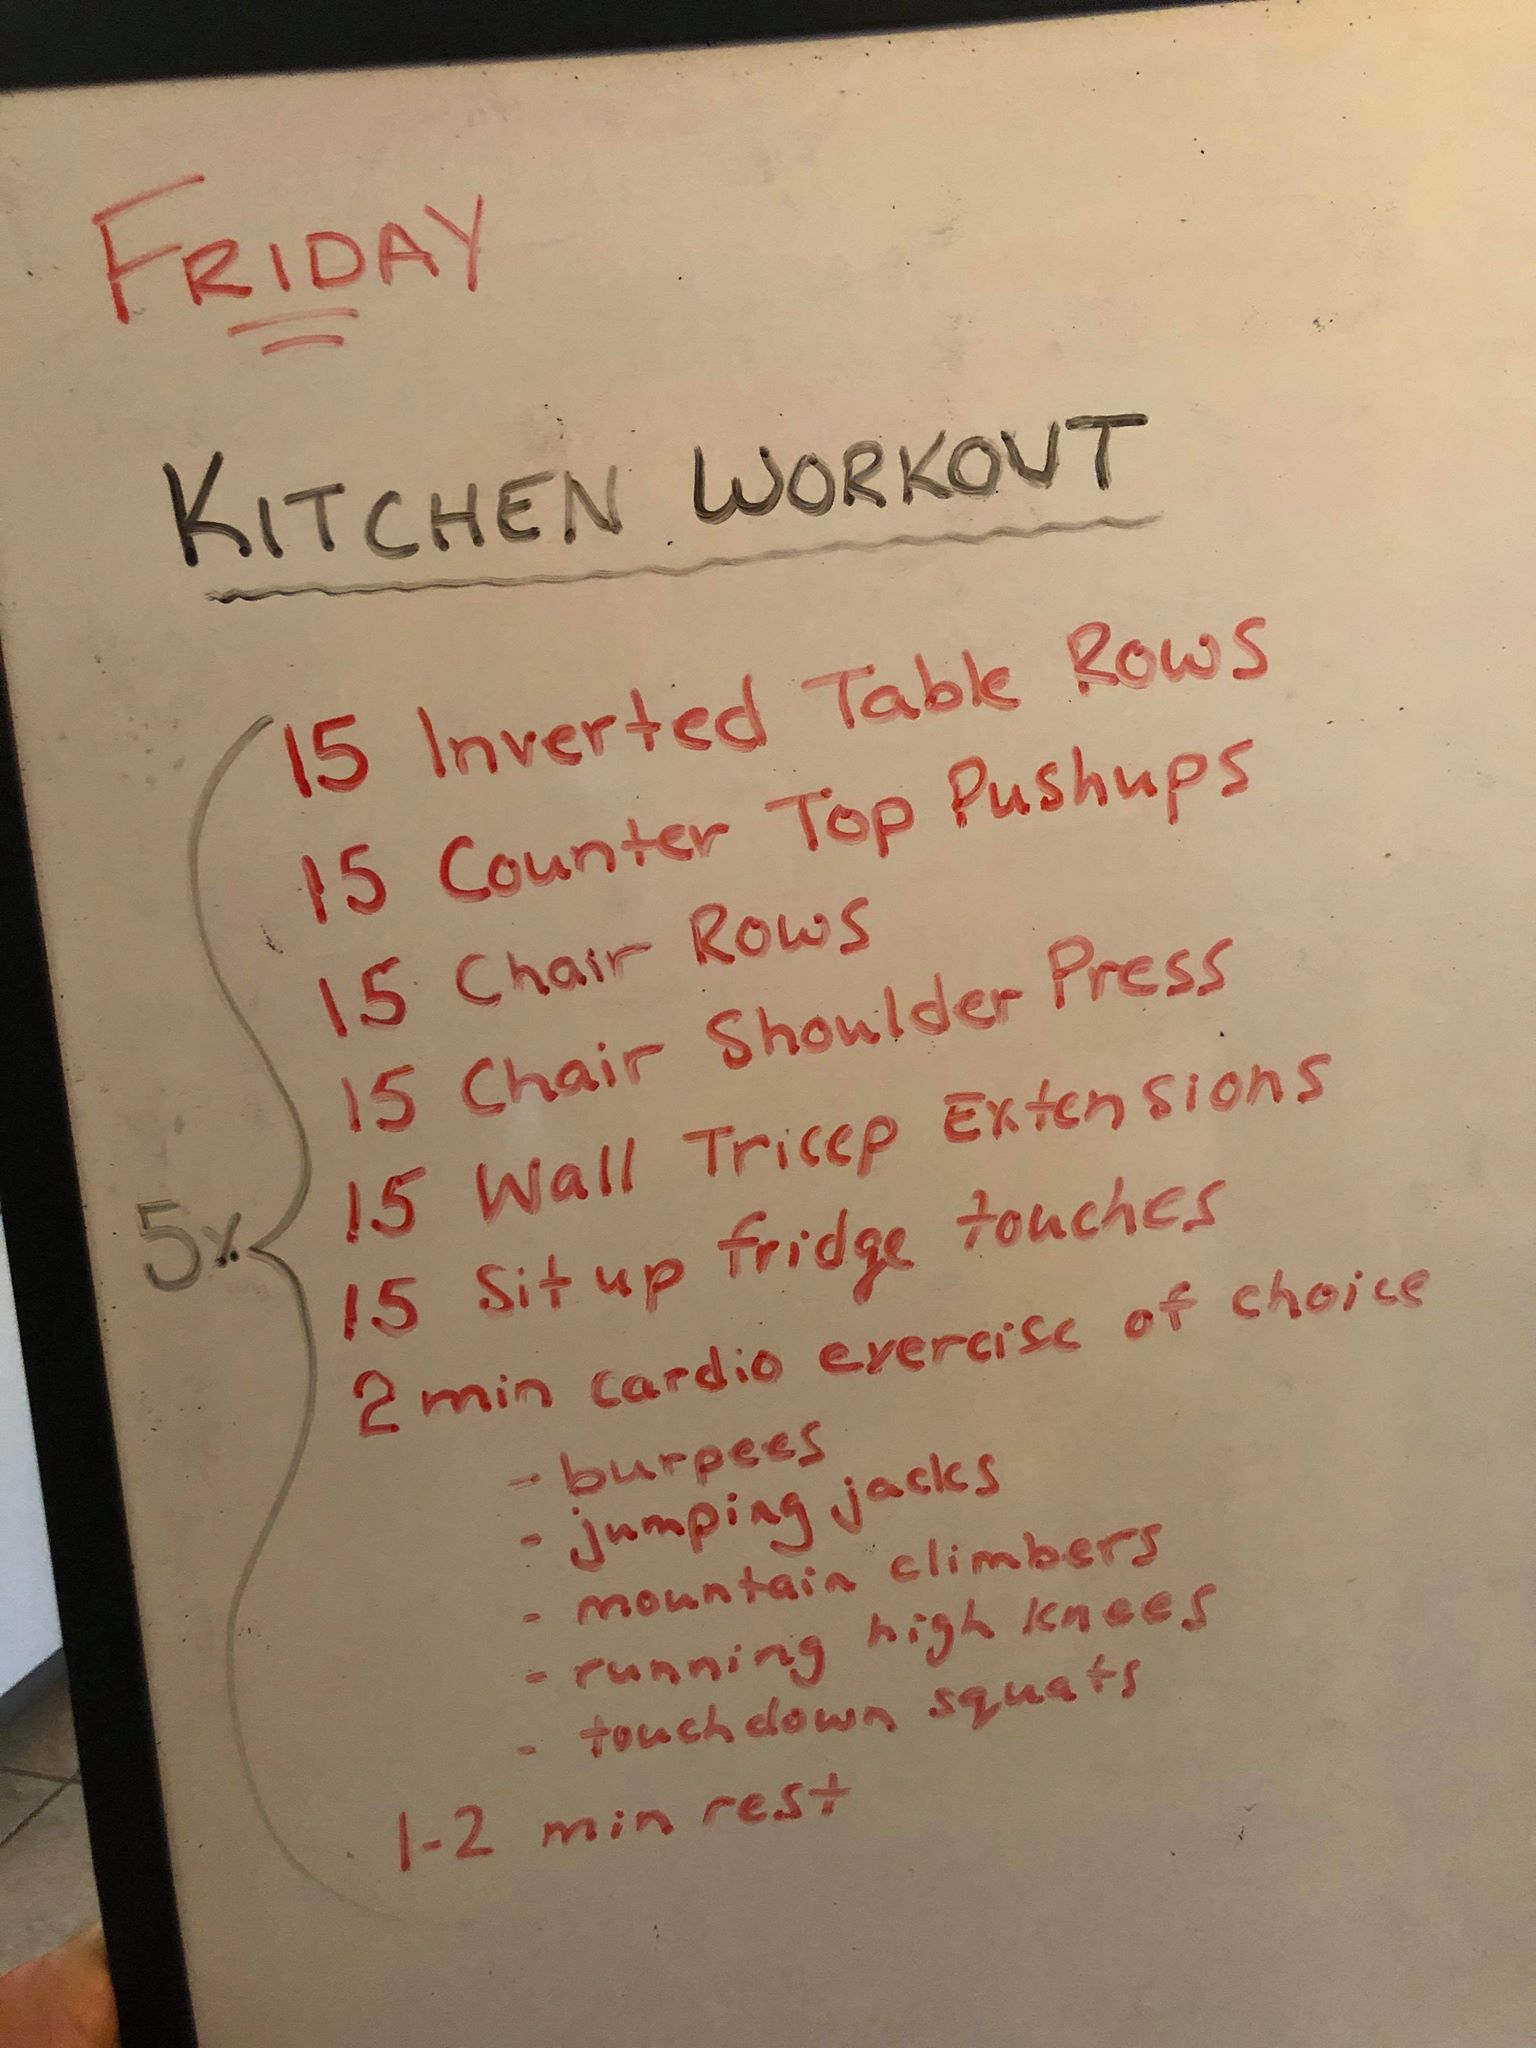 FRIDAY
KITCHEN WORKOUT
15 Inverted Table Rows
15 Counter Top Pushups
15 Chair Rows
15 Chair Shoulder Press
15 Wall Tricep Extensions
5x
15 Sit up fridge touches
2 min cardio exercise of choice
- burpees
- jumping jacks
- mountain climbers
- running high knees
- touchdown squats
1-2 min rest